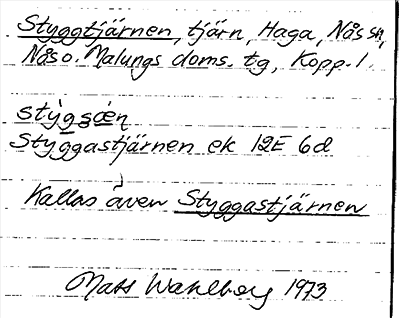 Styggtjärnen, tjärn, Haga, Nås sn,
Nås o. Malungs doms. tg, Kopp. l.
Styggastjärnen ek 12E 6d
Kallas även Styggastjärnen
Mats Wahlberg 1973